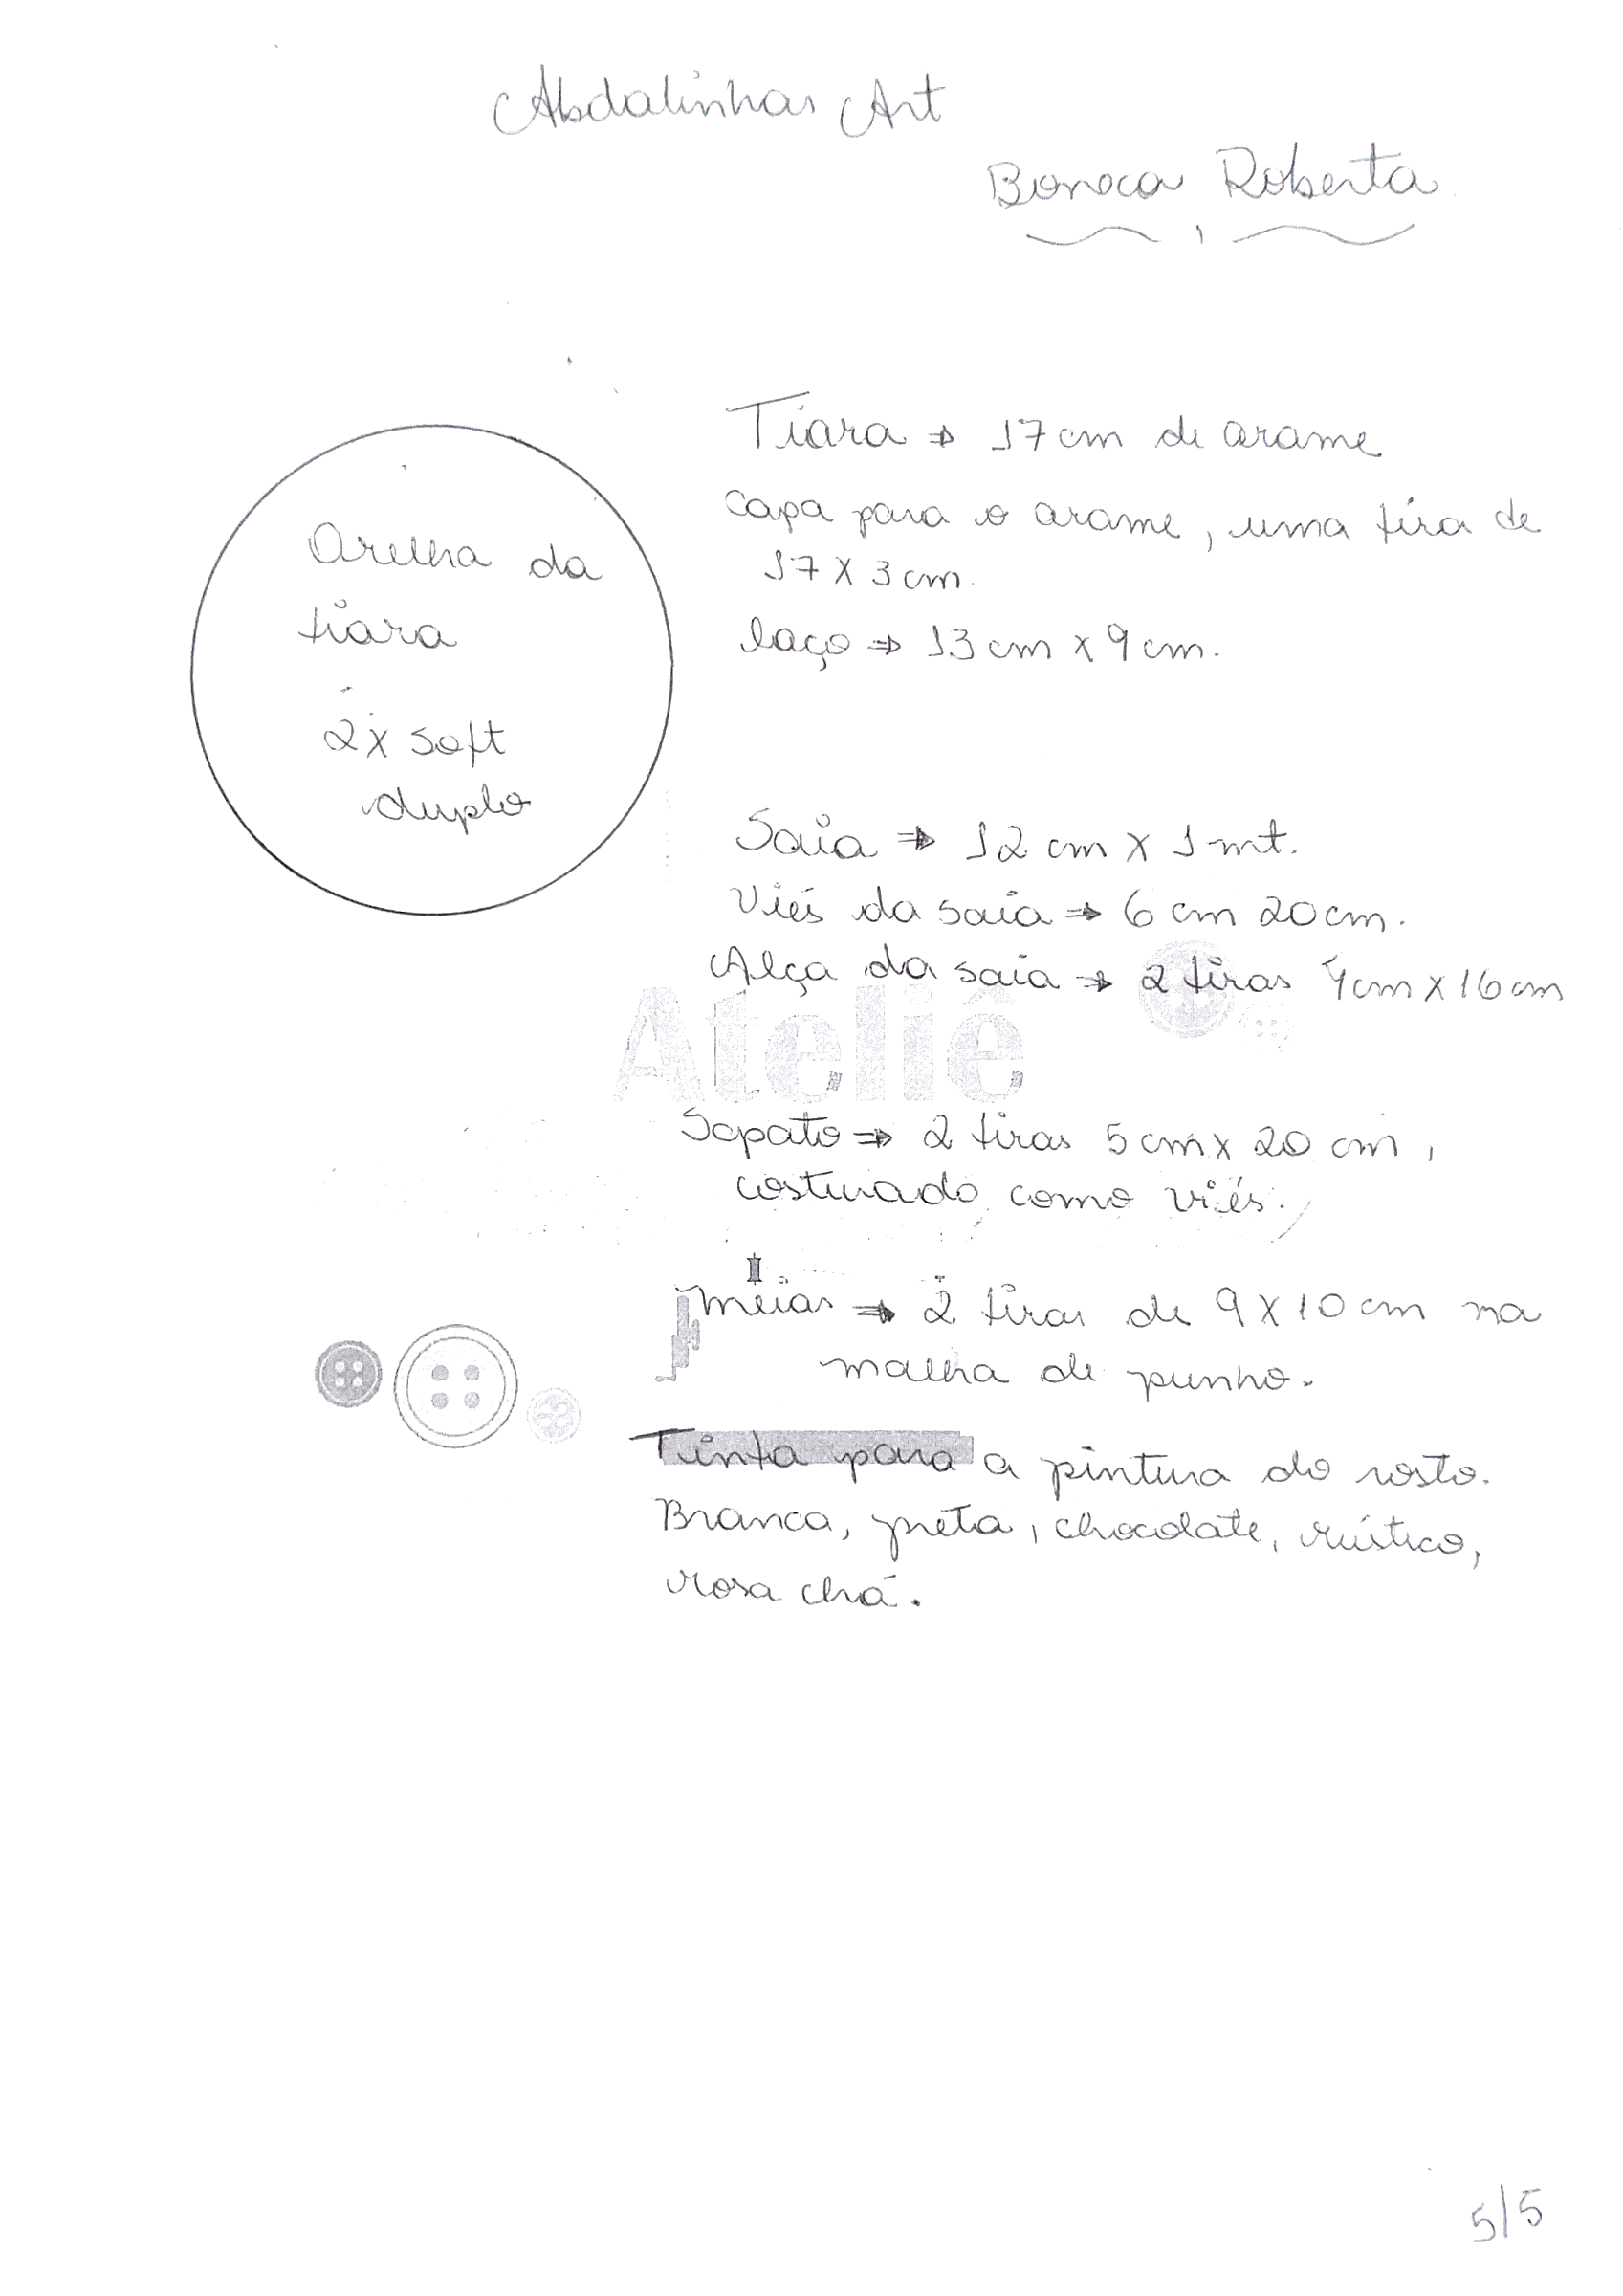 Abdalinhas Art
Boneca Roberta
Orelha da
tiara
2x soft
duplo
Tiara ⇒ 17 cm de arame
capa para o arame, uma tira de
17 X 3 cm.
laço ⇒ 13 cm x 9 cm.
Saia ⇒ 12 cm X 1 mt.
Viés da saia ⇒ 6 cm 20 cm.
Alça da saia ⇒ 2 tiras 4 cm X 16 cm
Ateliê
Sapato ⇒ 2 tiras 5 cm x 20 cm,
costurado como viés.
meias ⇒ 2 tiras de 9 X 10 cm na
malha de punho.
Tinta para a pintura do rosto.
Branca, preta, chocolate, rústico,
rosa chá.
5/5